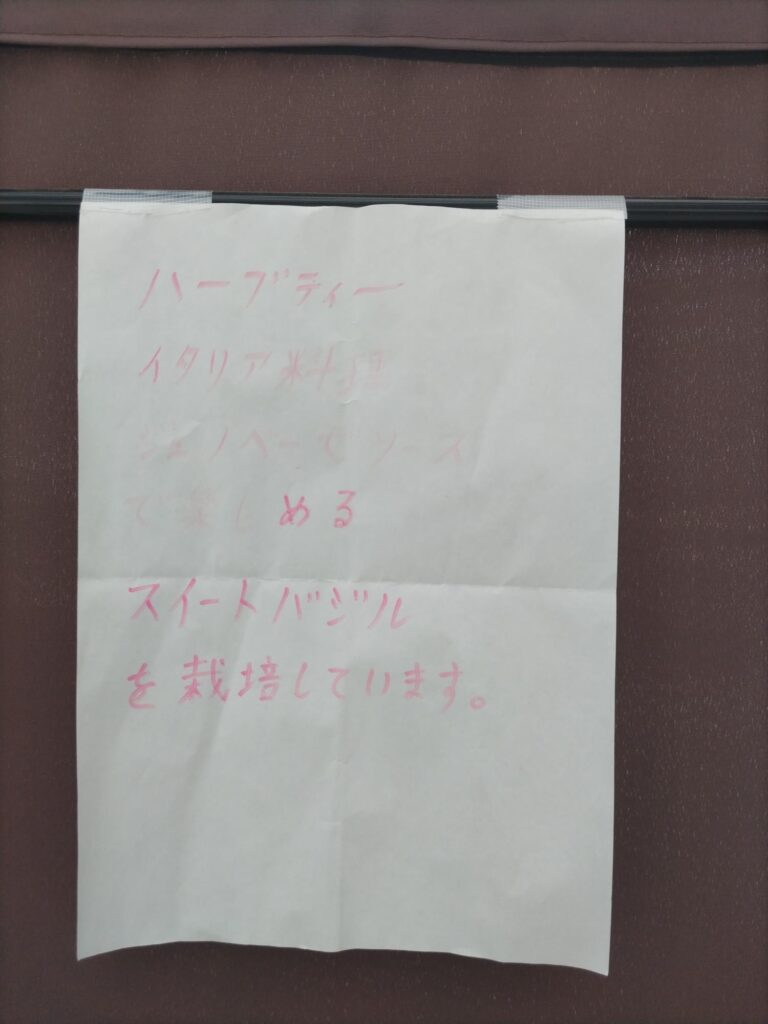 ハーブティー
イタリア料理
ジェノベーゼソース
で楽しめる
スイートバジル
を栽培しています。